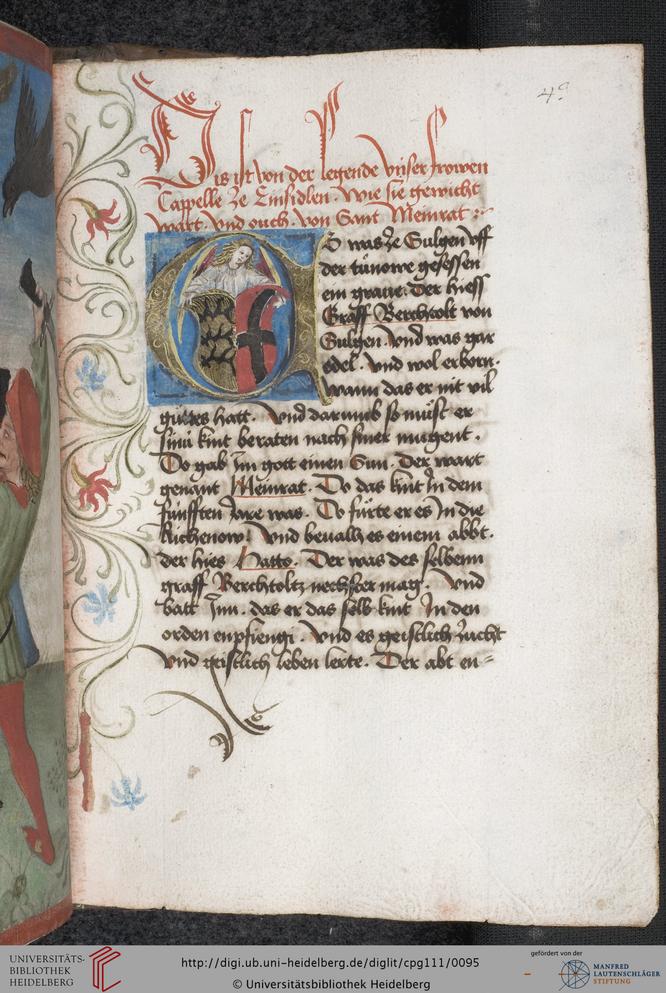 Dis ist von der legende vnser frowen
Cappelle ze Einsidlen. wie sie gewicht
wart. vnd ouch. von Sant Meinrat
Es was ze Sulgen vff
der tůnowe gesessen
ein graue. der hiess
Graff Berchtolt von
Sulgen. vnd was gar
edel. vnd wol erborn.
wann das er nit vil
gůttes hatt. vnd darumb so můst er
sinü kint beraten nach siner mugent.
Do gab Im gott einen Sun. Der wart
genant Meinrat. Do das kint In dem
fünfften Jare was. Do fürte er es In die
Richenow. vnd beualh es einem abbt.
der hies Hatto. Der was des selbenn
graff Berchtoltz nechster mag. vnd
batt Inn. das er das selb kint In den
orden enpfiengi. vnd es geistlich zucht
vnd geistlich leben lerte. Der abt en=
UNIVERSITÄTS-
BIBLIOTHEK
HEIDELBERG
http://digi.ub.uni-heidelberg.de/diglit/cpg111/0095
© Universitätsbibliothek Heidelberg
gefördert von der
MANFRED
LAUTENSCHLÄGER
STIFTUNG